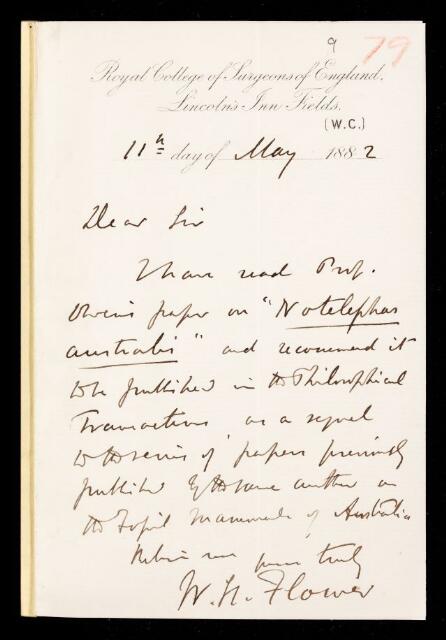 9 79
Royal College of Surgeons of England.
Lincoln's Inn Fields.
(W.C.)
11th day of May 1882
Dear Sir
I have read Prof.
Owen's paper on "Notelephas
australis" and recommend it
to be published in the Philosophical
Transactions as a sequel
to the series of papers previously
published by the same author on
the Fossil Mammals of Australia
Believe me yours truly
W. H. Flower